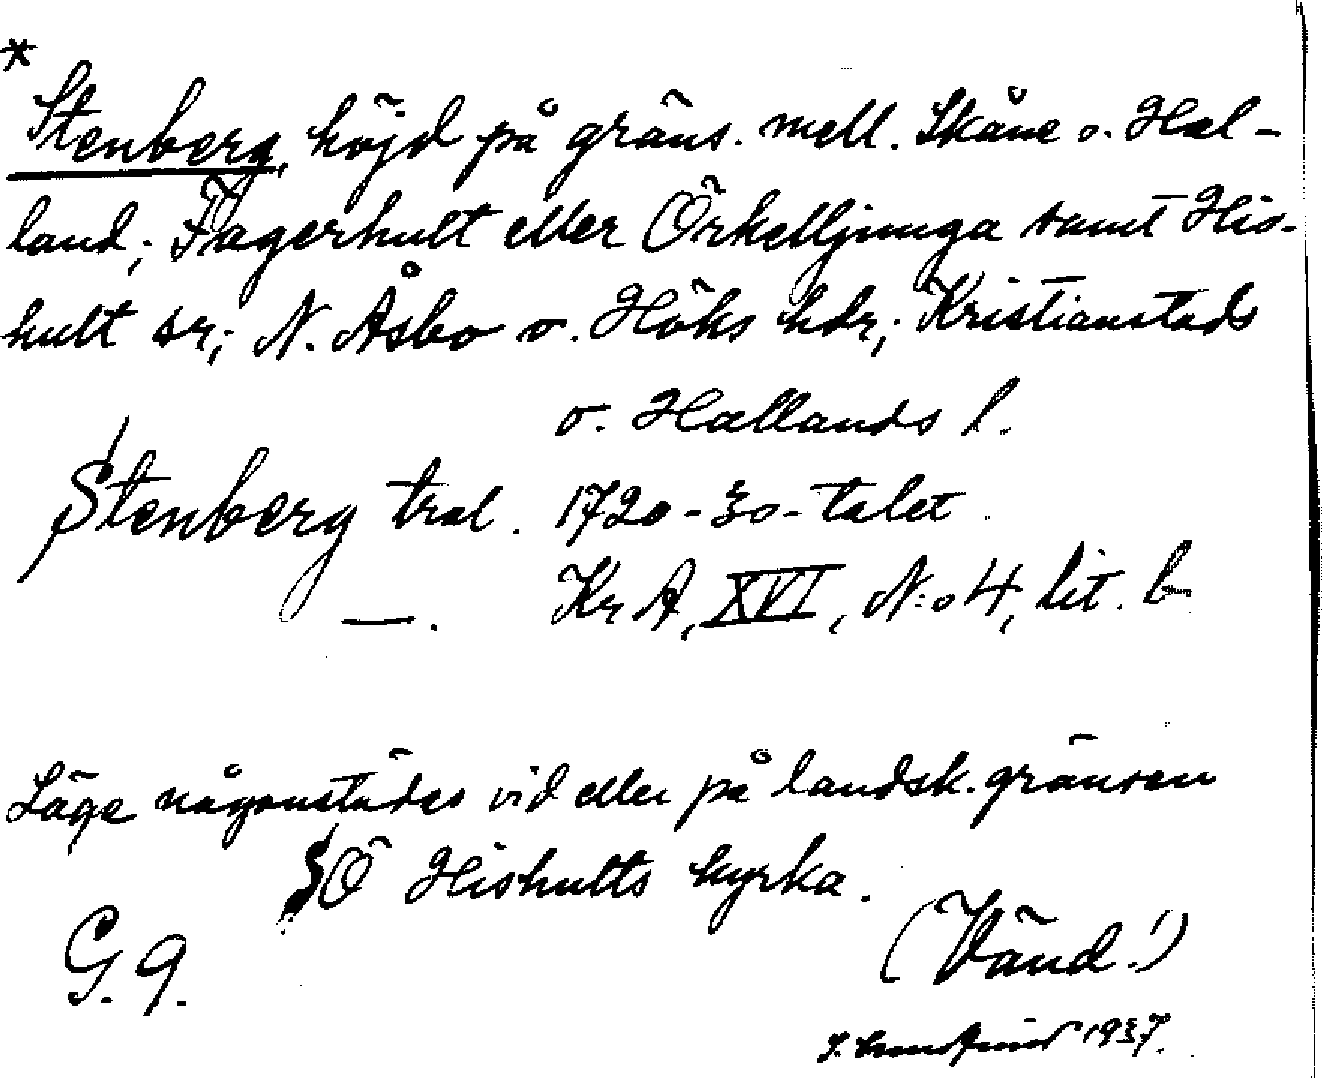 *
Stenberg, höjd på gräns. mell. Skåne o. Hal-
land; Fagerhult eller Örkelljunga samt His-
hult sr; N. Åsbo o. Höks hdr; Kristianstads
o. Hallands l.
Stenberg tral. 1720-30-talet.
—. Kr A, XVI, N:o 4, lit. b
Läge någonstädes vid eller på landsk.gränsen
SÖ Hishults kyrka.
G. 9. (Vänd!)
1937.